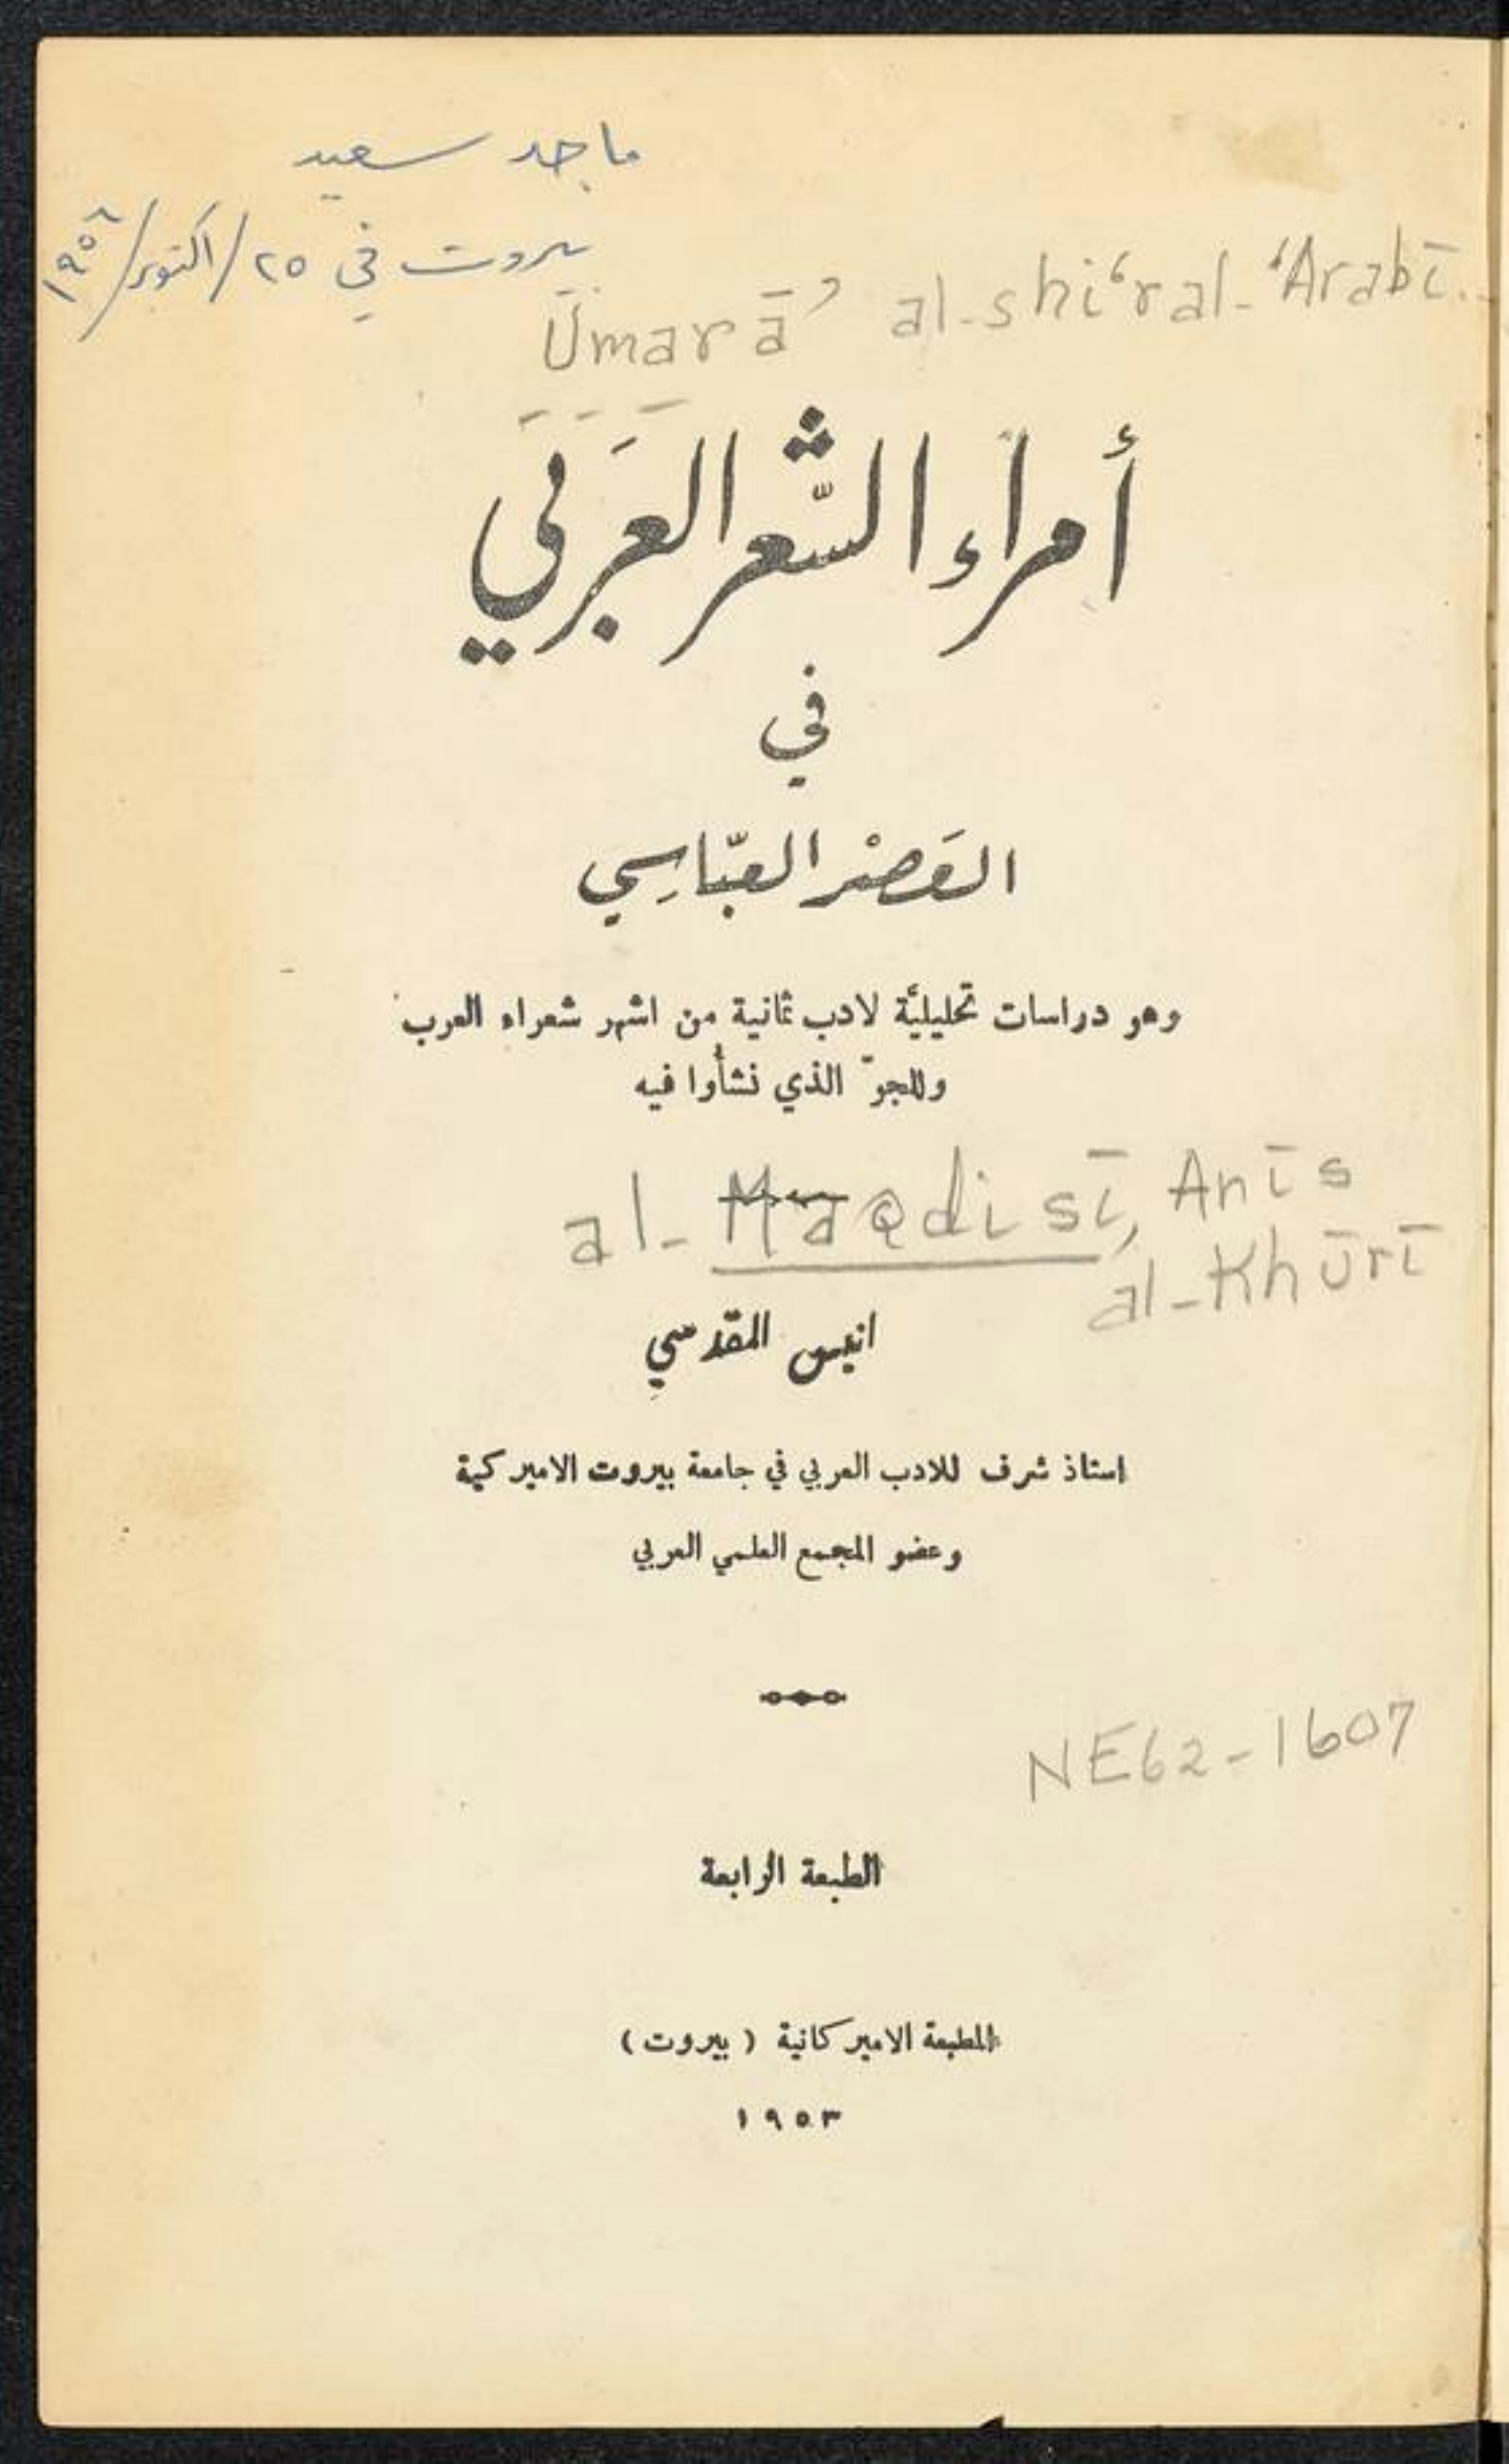 ماجد سعيد
بيروت في ٢٥/اكتوبر/١٩٥٦
Umarā' al-shi‘r al-‘Arabī.
أمراء الشّعر العَرَبي
في
العَصْر العبّاسِي
وهو دراسات تحليليَّة لادب ثمانية من اشهر شعراء العرب
وللجوّ الذي نشأوا فيه
al-Maqdisī, Anīs
al-Khūrī
انيس المقدسي
استاذ شرف للادب العربي في جامعة بيروت الاميركية
وعضو المجمع العلمي العربي
NE62-1607
الطبعة الرابعة
المطبعة الاميركانية ( بيروت )
١٩٥٣